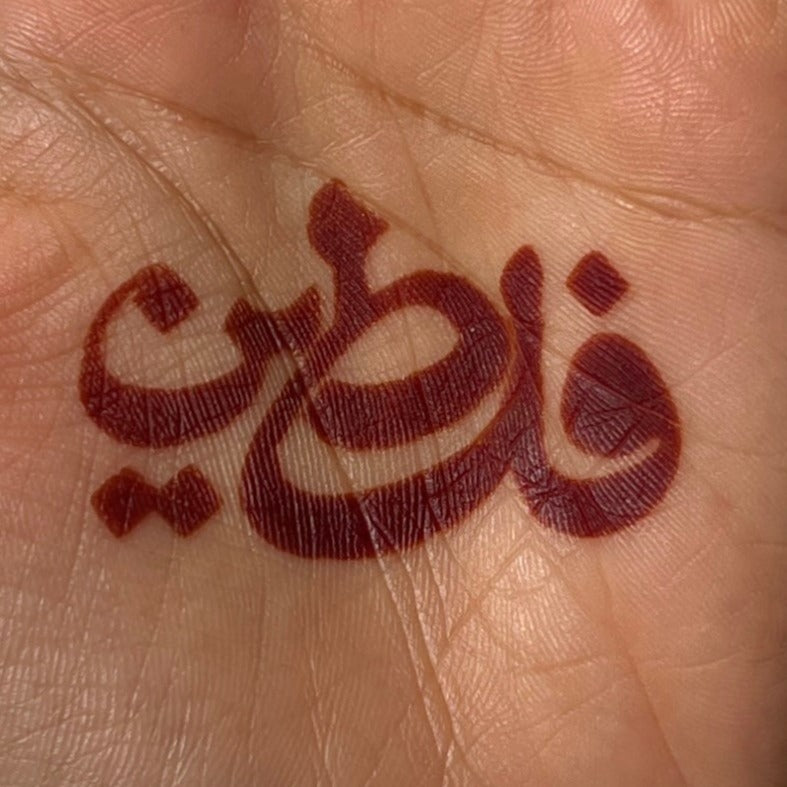 فلسطين